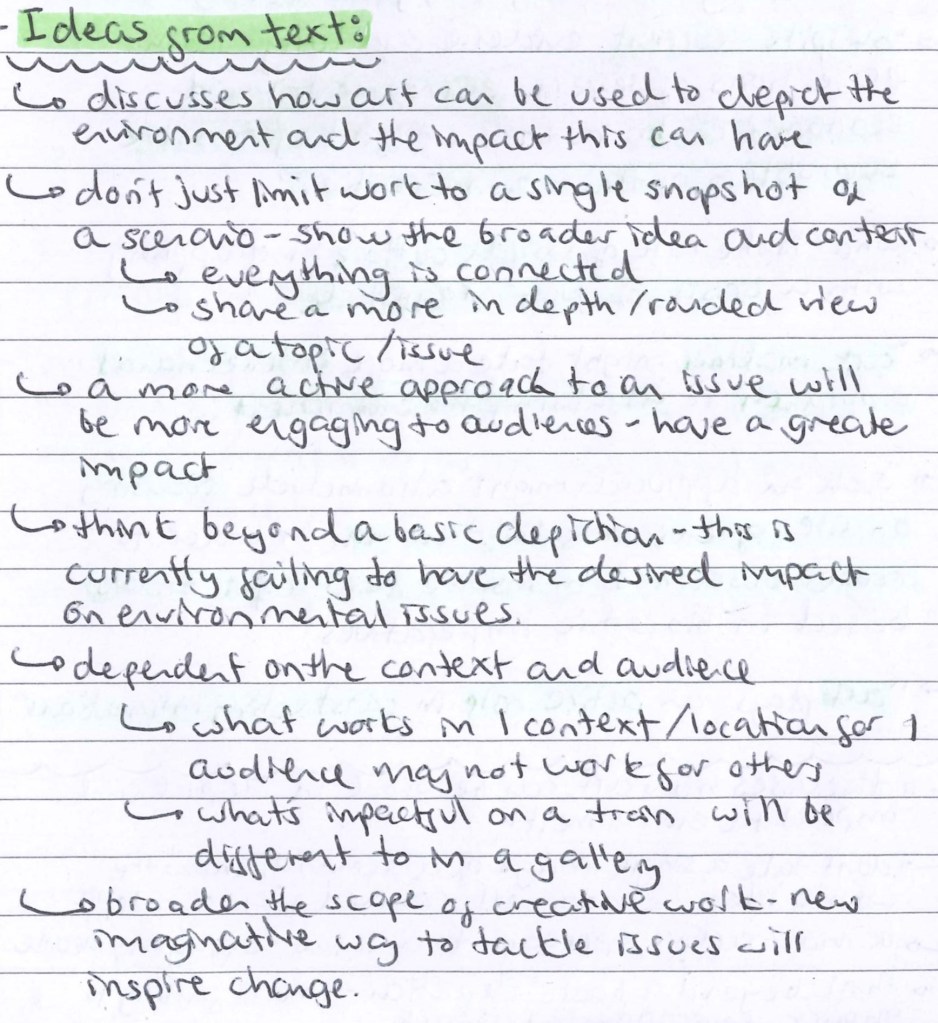 - Ideas from text:
↳ discusses how art can be used to depict the
environment and the impact this can have
↳ don't just limit work to a single snapshot of
a scenario - show the broader idea and context
↳ everything is connected
↳ share a more in depth/rounded view
of a topic/issue
↳ a more active approach to an issue will
be more engaging to audiences - have a greate
impact
↳ think beyond a basic depiction - this is
currently failing to have the desired impact
on environmental issues.
↳ dependent on the context and audience
↳ what works in 1 context/location for 1
audience may not work for others
↳ what's impactful on a train will be
different to in a gallery
↳ broaden the scope of creative work - new
imaginative way to tackle issues will
inspire change.